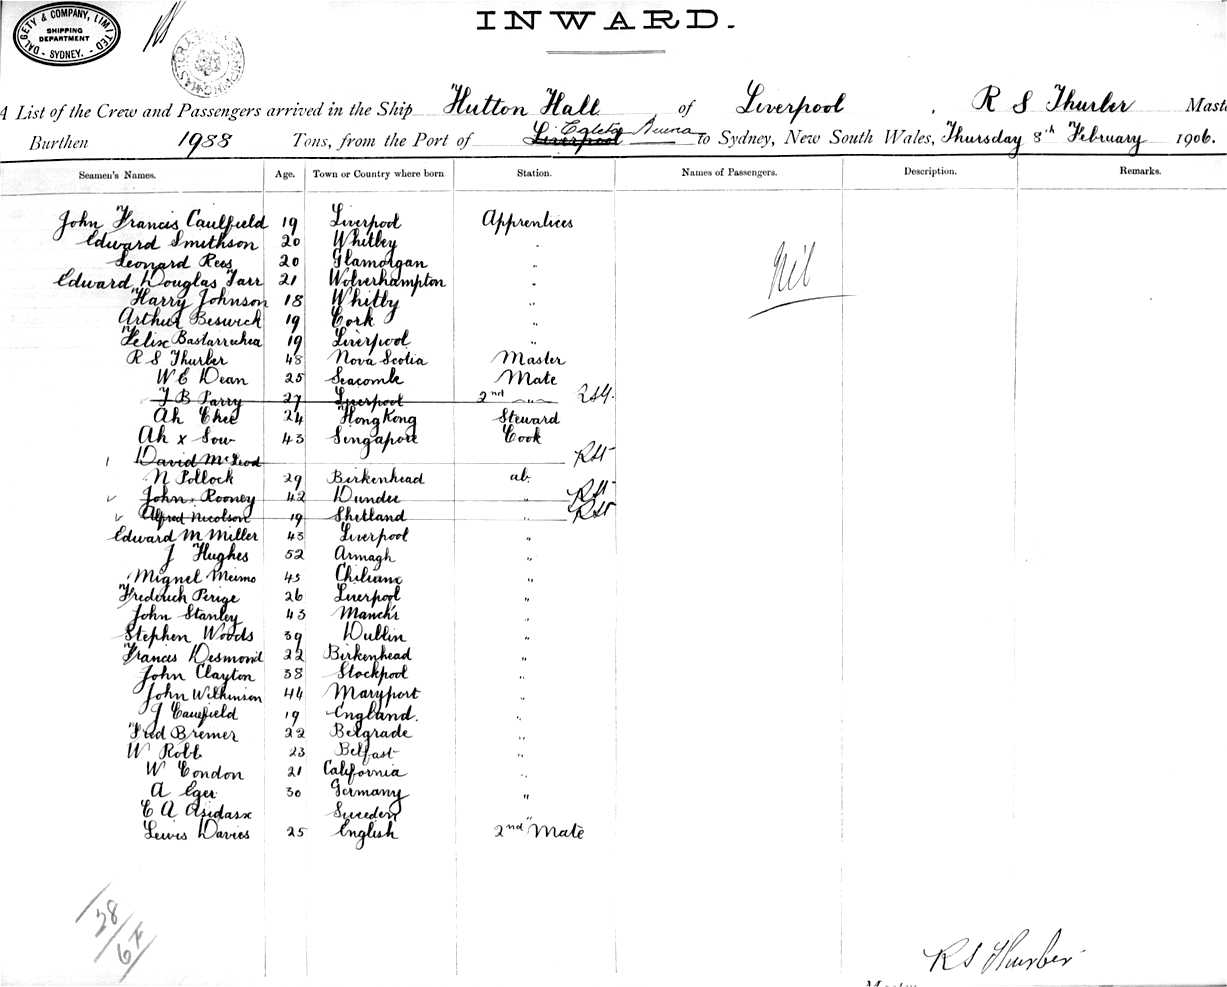 DALGETY & COMPANY, LIMITED
SHIPPING
DEPARTMENT
- SYDNEY. -
INWARD.
A List of the Crew and Passengers arrived in the Ship Hutton Hall of Liverpool , R S Thurber Maste
Burthen 1988 Tons, from the Port of Liverpool Buena to Sydney, New South Wales, Thursday 8th February 1906.
Seamen's Names. Age. Town or Country where born Station. Names of Passengers. Description. Remarks.
John Francis Caulfield 19 Liverpool Apprentices
Edward Smithson 20 Whitley "
Leonard Rees 20 Glamorgan "
Edward Douglas Tarr 21 Wolverhampton "
Harry Johnson 18 Whitby "
Arthur Beswick 19 Cork "
Felix Bastarrechea 19 Liverpool "
R S Thurber 48 Nova Scotia Master
W E Dean 25 Seacomb Mate
J B Parry 27 Liverpool 2nd "
Ah Chee 24 Hong Kong Steward
Ah x Sow 43 Singapore Cook
David McLeod
N Pollock 29 Birkenhead ab.
John Rooney 42 Dundee "
Alfred Nicolson 19 Shetland "
Edward M Miller 43 Liverpool "
J Hughes 52 Armagh "
Miguel Meimo 43 Chiliano "
Frederich Perige 26 Liverpool "
John Stanley 43 Manchr "
Stephen Woods 39 Dublin "
Francis Desmond 22 Birkenhead "
John Clayton 38 Stockpool "
John Wilkinson 44 Maryport "
J Caulfield 19 England. "
Fred Bremer 22 Belgrade "
W Robb 23 Belfast "
W Condon 21 California "
A Eger 30 Germany "
E A Sweden
Lewis Davies 25 English 2nd Mate
Nil
28
67
R S Thurber